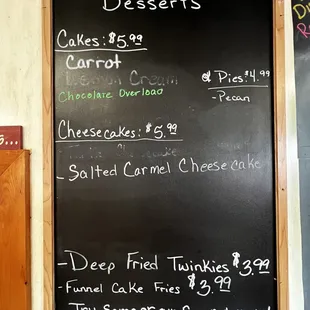 Desserts
Cakes: $5.99
Carrot
Lemon Cream
Chocolate Overload
Pies: $4.99
- Pecan
Cheesecakes: $5.99
- Salted Carmel Cheesecake
- Deep Fried Twinkies $3.99
- Funnel Cake Fries $3.99